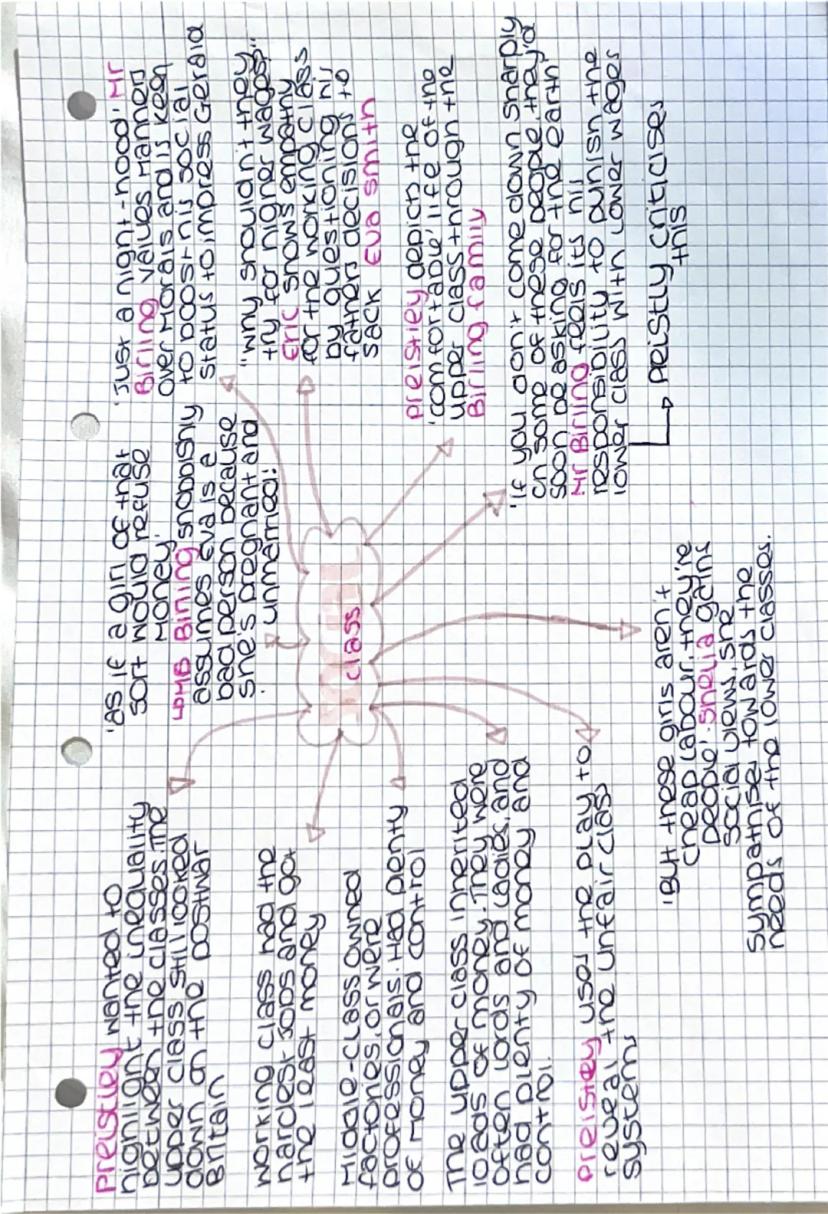 Preistley wanted to
highlight the inequality
between the classes. The
upper class still looked
down on the postwar
Britain
working class had the
hardest jobs and got
the least money
Middle-class owned
factories or were
professionals. Had plenty
of money and control
The upper class inherited
loads of money. They were
often Lords and Ladies, and
had plenty of money and
control.
preistley uses the play to
reveal the unfair class
systems
social
class
'As if a girl of that
sort would refuse
money'
Birling snobbishly
assumes Eva is a
bad person because
she's pregnant and
unmarried!
'Just a night-hood' Mr
Birling values manners
over morals and is keen
to boost his social
status to impress Gerald
"Why shouldn't they
try for higher wages"
Eric shows empathy
for the working class
by questioning his
fathers decisions to
sack Eva smith
preistley depicts the
'comfortable' life of the
upper class through the
Birling family
'If you don't come down sharply
on some of these people, they'd
soon be asking for the earth'
Mr Birling feels its his
responsibility to punish the
lower class with lower wages
preistly criticises
this
'But these girls aren't
cheap labour, they're
people'. Sheila gains
social views, she
sympathise towards the
needs of the lower classes.